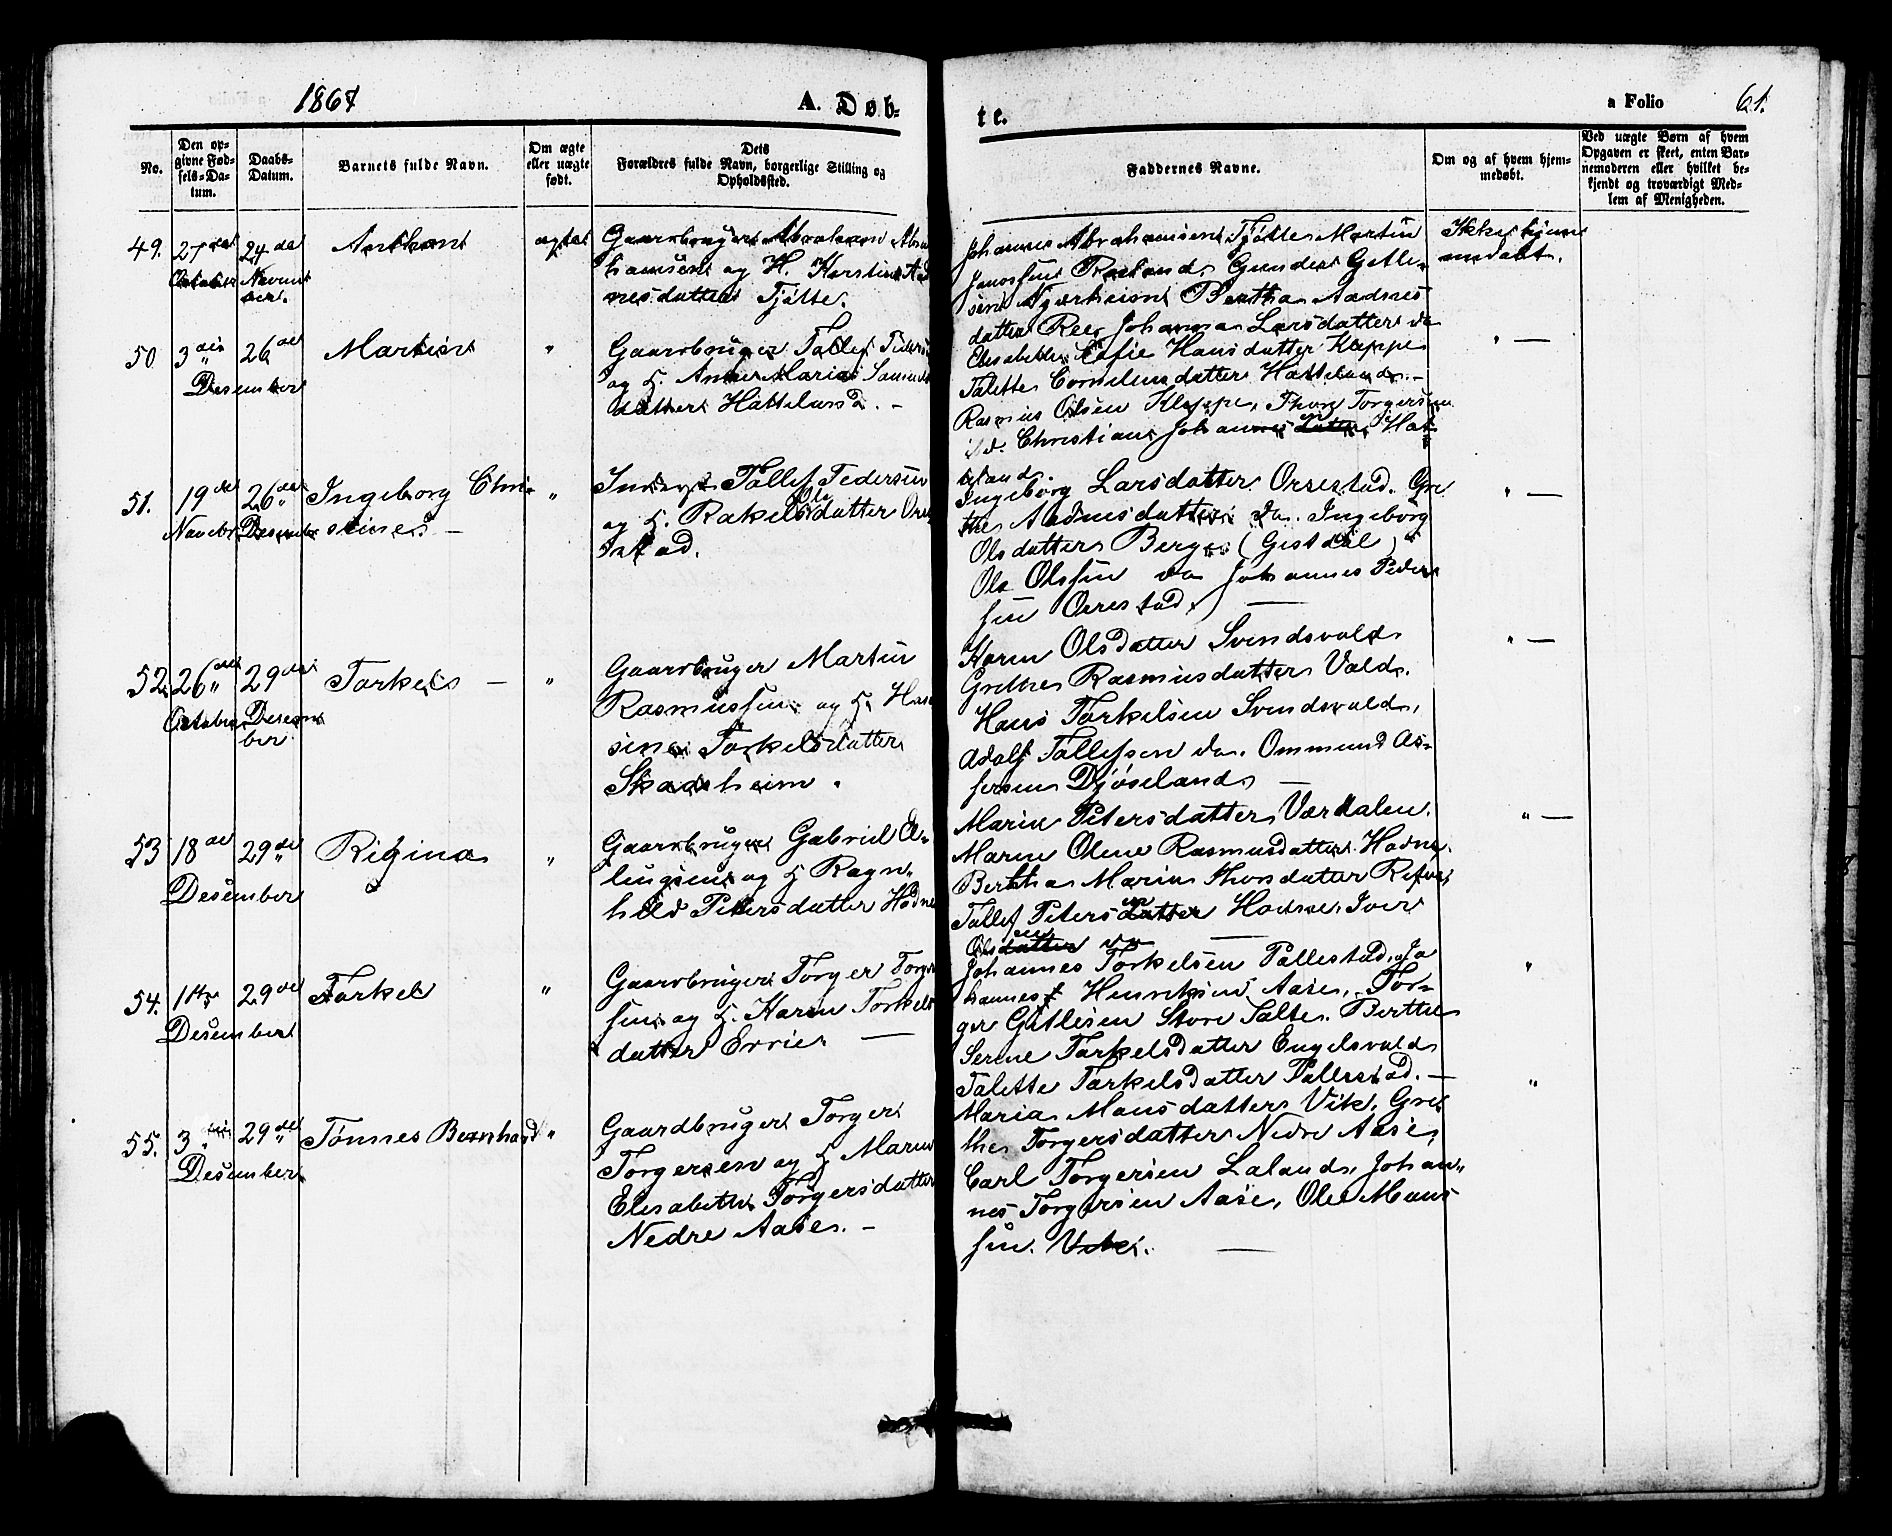 1867
A. Døb-
te.
a Folio
61.
No.
Den op-
givne Fød-
sels-Da-
tum.
Daabs-
Datum.
Barnets fulde Navn.
Om ægte
eller uægte
født.
Dets
Forældres fulde Navn, borgerlige Stilling og
Opholdssted.
Faddernes Navne.
Om og af hvem hjem-
medøbt.
Ved uægte Børn af hvem
Opgaven er skeet, enten Bar-
nemoderen eller hvilket be-
kjendt og troværdigt Med-
lem af Menigheden.
49.
27de
October
24de
Novem
ber.
Anthon
ægte
Gaardbruger Abraham Abra
hamsen og H. Karstine Aad
nesdatter Tjøtte.
Johannes Abrahamsen Tjøtte Martin
Roeland, Gunder Gitle-
sen Njærheim Bertha Aadnes
datter Ree, Johanna Larsdatter do
Ikke hjem
medøbt.
50
3die
Desember
26de
Martin
"
Gaardbruger Tollef Peders
og H. Anne Maria
datter Hatteland. -
Elisabeth Sofie Hansdatter Kleppe
Talette Corneliusdatter Hatteland. -
Rasmus Olsen Kleppe, Thore Torgersen
do. Christian Johannesen Hat
teland.
" -
51.
19de
Novebr
26de
Desembr
Ingeborg Chri-
stine -
"
Inderst Tollef Pedersen
og H. Rakel Olsdatter Orre
stad.
Ingeborg Larsdatter Orrestad. Gre
the Aadnesdatter do. Ingeborg
Olsdatter Berge (Gjesdal)
Ole Olsen do Johannes Peder
sen Orrestad. -
" -
52.
26de
October
29de
Desem
ber
Torkel -
"
Gaardbruger Martin
Rasmussen og H. Han
sine Torkelsdatter
Skadsheim.
Karen Olsdatter Svendsvold
Grethe Rasmusdatter Vold.
Hans Torkelsen Svendsvold,
Adolf Tollefsen do. Ommund As-
sersen Djøseland -
" -
53
18de
Desember
29de
Regina
"
Gaardbruger Gabriel El-
lingsen og H Ragn-
hild Petersdatter Hodne
Marie Petersdatter Værdalen.
Maren Olene Rasmusdatter Hodne.
Bertha Marie Thorsdatter Refve,
Tollef Petersen Hodne, Iver
Olsen do -
" -
54.
1ste
Desember
29de
Torkel
"
Gaardbruger Torger Torger
sen og H. Karen Torkels
datter Errie. -
Johannes Torkelsen Pollestad, Jo
hannes Henriksen Aase, Tor-
ger Gitlesen Store Salte. Berthe
Serine Torkelsdatter Engelsvold
Talette Torkelsdatter Pollestad. -
"
55.
3die
Desember
29de
Tønnes Bernhard
"
Gaardbruger Torger
Torgersen og H Maren
Elisabeth Torgersdatter
Nedre Aase. -
Maria Monsdatter Vik. Gre
the Torgersdatter Nedre Aase,
Carl Torgersen Laland, Johan-
nes Torgersen Aase, Ole Mons
sen. Vik. -
"